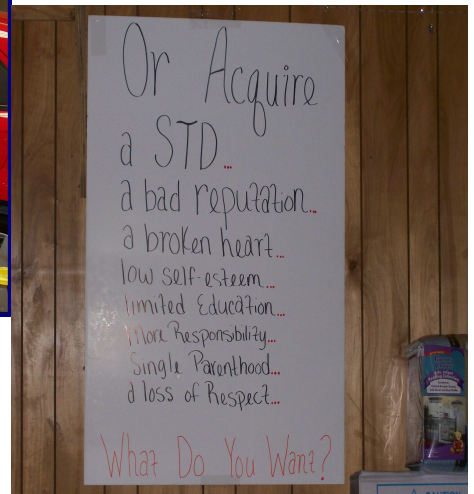 Or Acquire
a STD...
a bad reputation...
a broken heart...
low self-esteem...
limited Education...
More Responsibility...
Single Parenthood...
a loss of Respect...
What Do You Want?